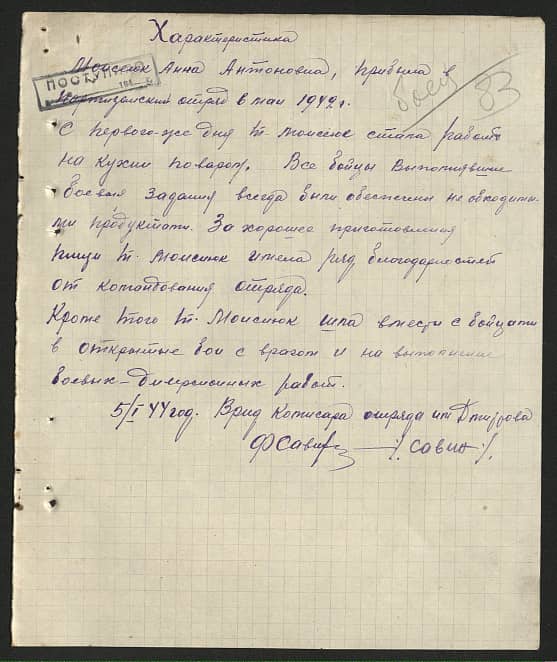 Характеристика
ПОСТУПИЛО
Моисеюк Анна Антоновна, прибыла в
партизанский отряд в маи 1942 г.
боев
83
С первого-же дня т. Моисеюк стала работать
на кухни поваром. Все бойцы выполнявшие
боевыя задания всегда были обеспечены необходимы-
ми продуктами. За хорошее приготовления
пищи т. Моисиюк имела ряд благодарностей
от командования отряда.
Кроме того т. Моисиюк шла вмести с бойцами
в открытые бои с врагом и на выполнение
боевых-диверсионных работ.
5/I 44 год. Врид Комисара отряда им Дмитрова
ФСавин /. Савин ./.